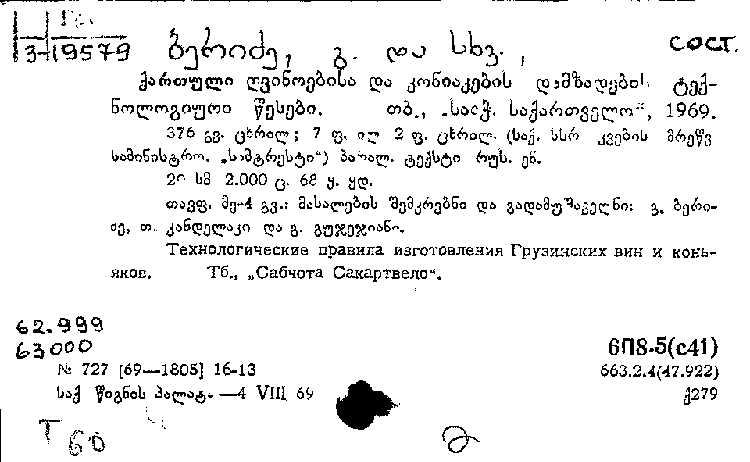 3-19579
ბერიძე, გ. და სხვ., сост.
ქართული ღვინოებისა და კონიაკების დამზადების ტექ-
ნოლოგიური წესები. თბ., „საბჭ. საქართველო“, 1969.
376 გვ. ცხრილ; 7 ფ. ილ 2 ფ. ცხრილ. (საქ. სსრ კვების მრეწვ
სამინისტრო. „სამტრესტი“) პარალ. ტექსტი რუს. ენ.
20 სმ 2.000 ც. 68 კ. ყდ.
თავფ. მე-4 გვ.: მასალების შემკრებნი და გადამუშავებლნი: გ. ბერი-
ძე, თ. კანდელაკი და გ. გუჯეჯიანი.
Технологические правила изготовления Грузинских вин и конь-
яков. Тб., „Сабчота Сакартвело“.
62.999
63000
6П8-5(с41)
№ 727 [69—1805] 16-13
663.2.4(47.922)
საქ წიგნის პალატ. —4 VIII 69
ქ279
T 60